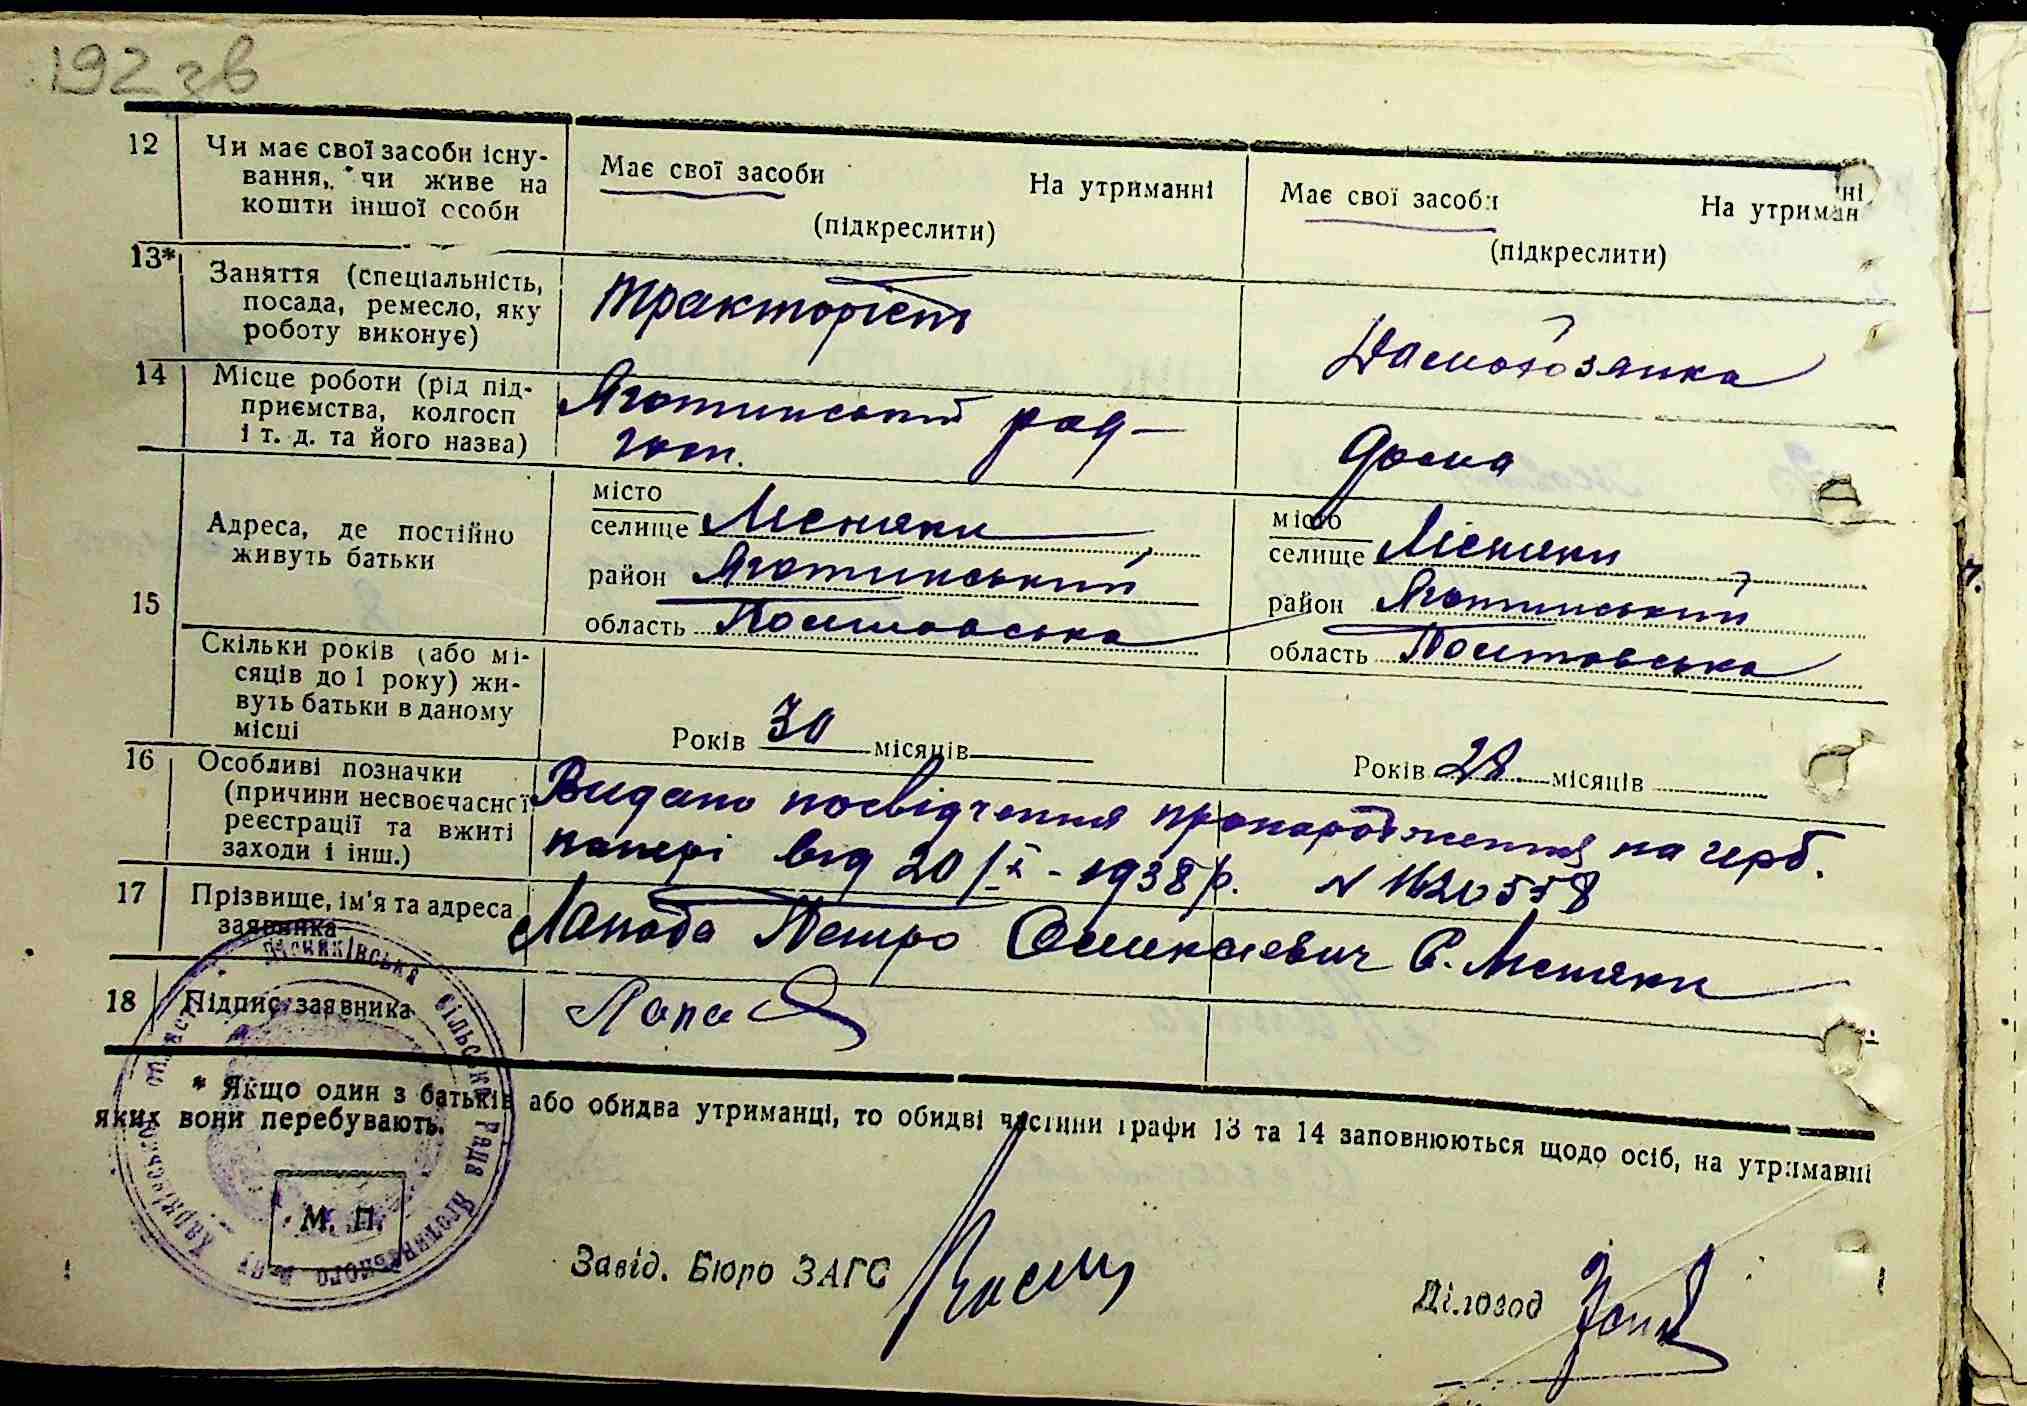 192 зв
12 Чи має свої засоби існу-
вання, чи живе на
кошти іншої особи
Має свої засоби На утриманні
(підкреслити)
Має свої засоби На утриман
ні
(підкреслити)
13* Заняття (спеціальність,
посада, ремесло, яку
роботу виконує)
тракторіст
Домогозяйка
14 Місце роботи (рід під-
приємства, колгосп
і т. д. та його назва)
Яготинський рад-
госп.
дома
15 Адреса, де постійно
живуть батьки
місто
селище Лісняки
район Яготинський
область Полтавська
місто
селище Лісняки
район Яготинський
область Полтавська
Скільки років (або мі-
сяців до 1 року) жи-
вуть батьки в даному
місці
Років 30 місяців
Років 28 місяців
16 Особливі позначки
(причини несвоєчасної
реєстрації та вжиті
заходи і інш.)
Видано посвідчення про народження на герб.
папері від 20/ІХ-1938 р. N 1620558
17 Прізвище, ім'я та адреса
заявника
Лапода Петро Олексієвич С. Лісняки
18 Підпис заявника
Лапо
* Якщо один з батьків або обидва утриманці, то обидві частини графи 13 та 14 заповнюються щодо осіб, на утриманні
яких вони перебувають.
Лісняківська сільська Рада Яготинського р-ну Харківської області
М. П.
Завід. Бюро ЗАГС
Діловод